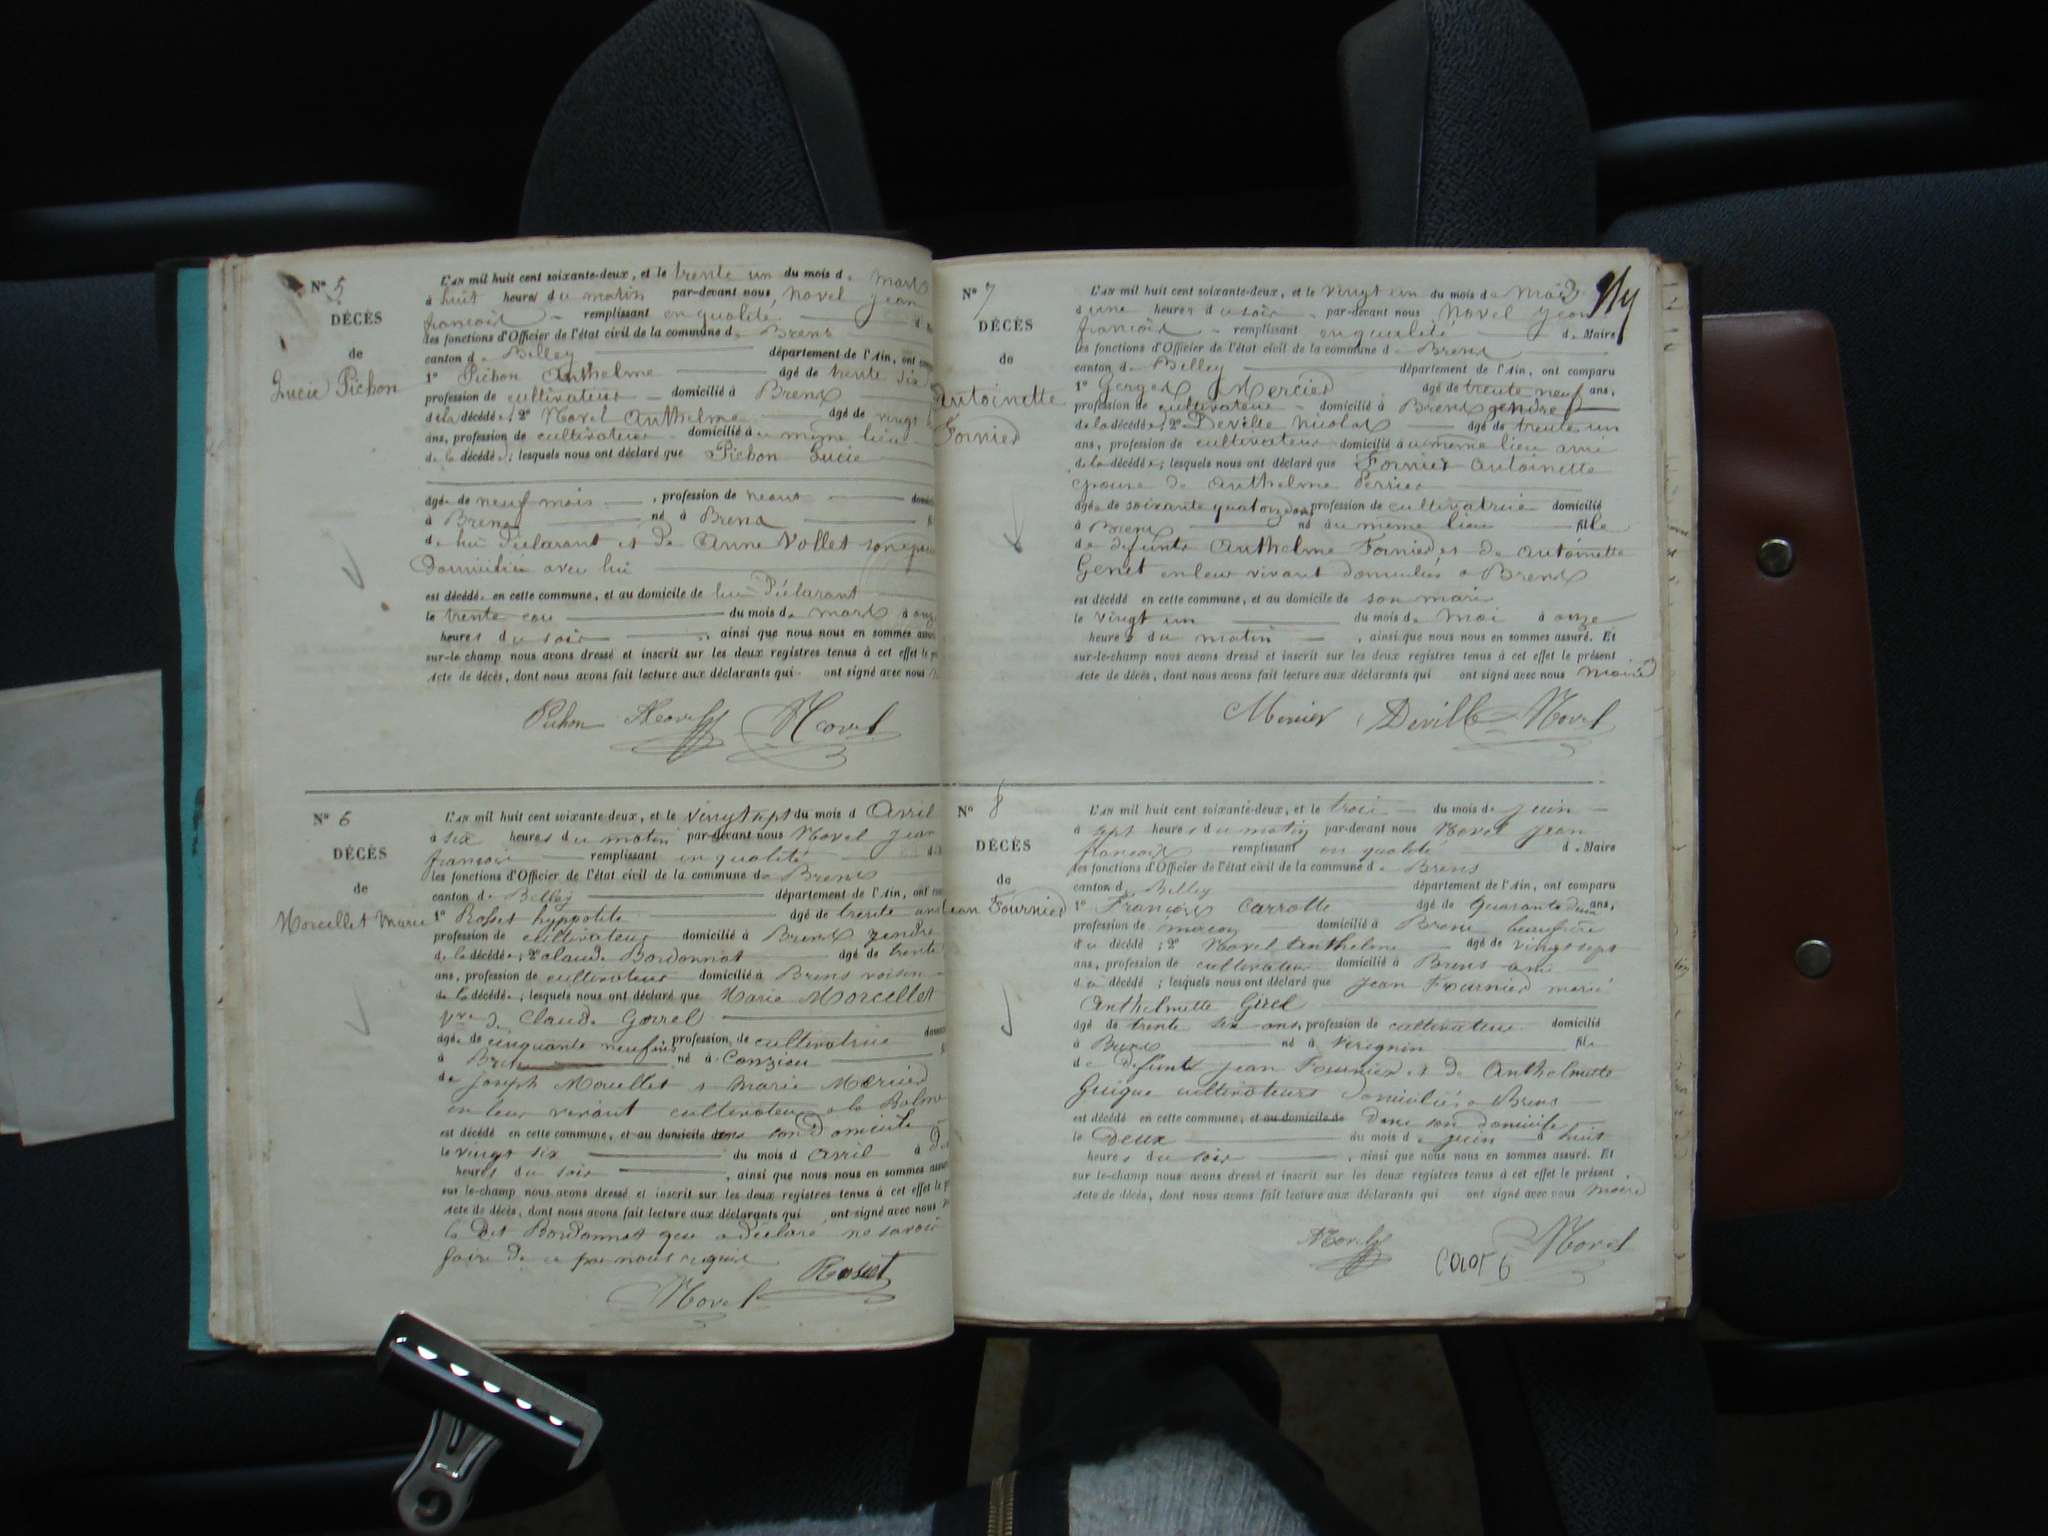 N° 5
DÉCÈS
de
Lucie Pichon
L'AN mil huit cent soixante-deux, et le trente un du mois de mars
à huit heures du matin par-devant nous, Novel Jean
françois remplissant en qualité
les fonctions d'Officier de l'état civil de la commune de Brens
canton de Belley département de l'Ain, ont
1° Pichon Anthelme âgé de trente six
profession de cultivateur domicilié à Brens
de la décédée; 2° Novel Anthelme âgé de vingt
ans, profession de cultivateur domicilié à même lieu
de la décédée; lesquels nous ont déclaré que Pichon Lucie
âgée de neuf mois, profession de néant
à Brens né à Brens
de lui déclarant et de Anne Vollet son
Domiciliée avec lui
est décédée en cette commune, et au domicile de lui Déclarant
le trente du mois de mars à onze
heures du soir, ainsi que nous nous en sommes assuré
sur-le-champ nous avons dressé et inscrit sur les deux registres tenus à cet effet le
acte de décès, dont nous avons fait lecture aux déclarants qui ont signé avec nous
Pichon Novel Novel
N° 6
DÉCÈS
de
Morcellet Marie
L'AN mil huit cent soixante-deux, et le vingt sept du mois d Avril
à six heures du matin par-devant nous Novel Jean
françois remplissant en qualité
les fonctions d'Officier de l'état civil de la commune de Brens
canton de Belley département de l'Ain, ont
1° Rosset hyppolite âgé de trente ans
profession de cultivateur domicilié à Brens gendre
de la décédée; 2° claude Bordonnat âgé de trente
ans, profession de cultivateur domicilié à Brens voisin
de la décédée; lesquels nous ont déclaré que Marie Morcellet
Vve de Claude Gorrel
âgée de cinquante neuf ans profession de cultivatrice
à né à Conzieu
de Joseph Morcellet et Marie Mercier
en leur vivant cultivateurs a la Balme
est décédé en cette commune, et au domicile dans son Domicile
le vingt six du mois d avril à
heures du soir, ainsi que nous nous en sommes assuré
sur-le-champ nous avons dressé et inscrit sur les deux registres tenus à cet effet le
acte de décès, dont nous avons fait lecture aux déclarants qui ont signé avec nous
le dit Bordonnat qui a déclaré ne savoir
faire de ce par nous requis
Novel Rosset
N° 7
DÉCÈS
de
Antoinette
Fornier
L'AN mil huit cent soixante-deux, et le vingt un du mois de Mai
à une heures du soir par-devant nous Novel Jean
françois remplissant en qualité de Maire
les fonctions d'Officier de l'état civil de la commune de Brens
canton de Belley département de l'Ain, ont comparu
1° Mercier âgé de trente neuf ans,
profession de cultivateur domicilié à Brens gendre
de la décédée; 2° Deville Nicolas âgé de trente un
ans, profession de cultivateur domicilié au même lieu ami
de la décédée; lesquels nous ont déclaré que Fornier Antoinette
épouse de Anthelme Perrier
âgée de soixante quatorze ans profession de cultivatrice domicilié
à Brens né au même lieu fille
de défunts Anthelme Fornier et de Antoinette
Genet en leur vivant domiciliés a Brens
est décédé en cette commune, et au domicile de son mari
le vingt un du mois de Mai à onze
heures du matin, ainsi que nous nous en sommes assuré. Et
sur-le-champ nous avons dressé et inscrit sur les deux registres tenus à cet effet le présent
acte de décès, dont nous avons fait lecture aux déclarants qui ont signé avec nous Maire
Mercier Deville Novel
N° 8
DÉCÈS
de
Jean Fournier
L'AN mil huit cent soixante-deux, et le trois du mois de juin
à sept heures du matin par-devant nous Novel Jean
françois remplissant en qualité de Maire
les fonctions d'Officier de l'état civil de la commune de Brens
canton d Belley département de l'Ain, ont comparu
1° François Carrotte âgé de quarante deux ans,
profession de maçon domicilié à Brens beaufrère
du décédé; 2° Novel Anthelme âgé de vingt sept
ans, profession de cultivateur domicilié à Brens ami
du décédé; lesquels nous ont déclaré que Jean Fournier marié
Anthelmette Girel
âgé de trente six ans, profession de cultivateur domicilié
à Brens né à Virignin fils
de Défunts Jean Fournier et de Anthelmette
Guigue cultivateurs domiciliés a Brens
est décédé en cette commune, et au domicile de Dans son domicile
le Deux du mois de juin à huit
heures du soir, ainsi que nous nous en sommes assuré. Et
sur-le-champ nous avons dressé et inscrit sur les deux registres tenus à cet effet le présent
acte de décès, dont nous avons fait lecture aux déclarants qui ont signé avec nous Maire
Novel Novel